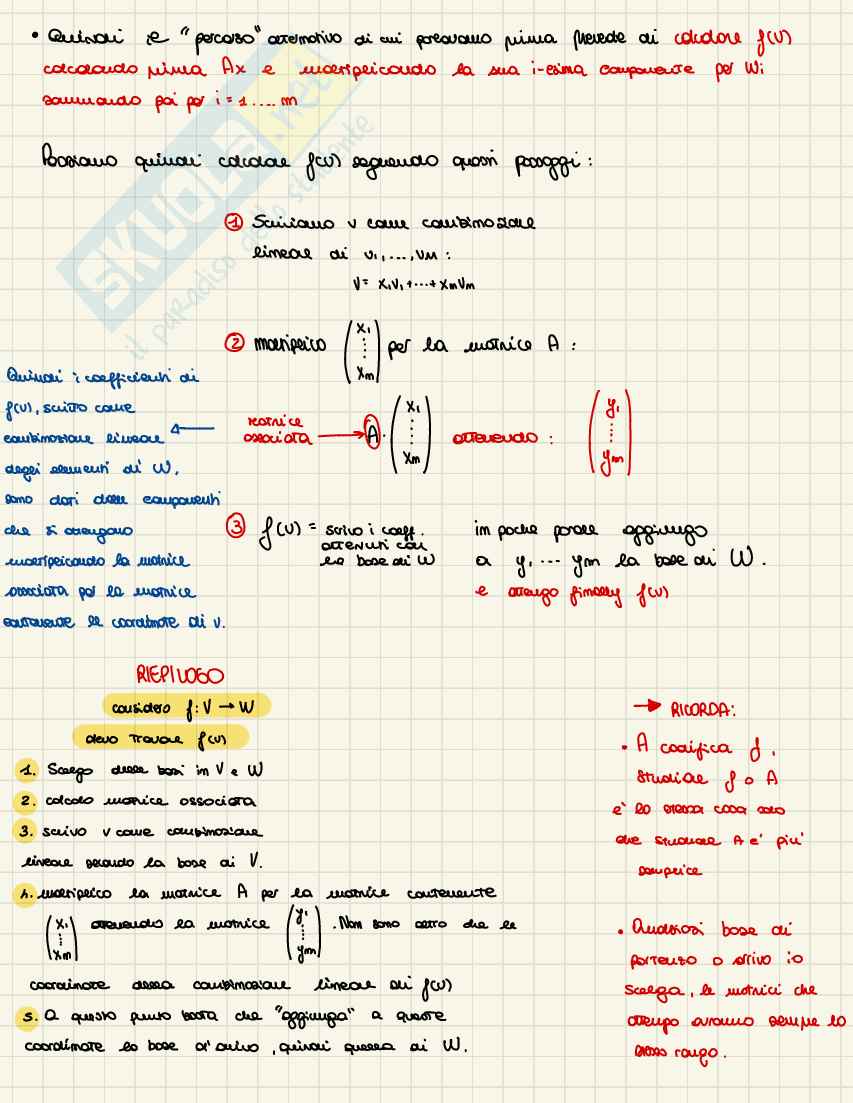 • Quindi il "percorso" alternativo di cui parlavamo prima prevede di calcolare f(v)
calcolando prima Ax e moltiplicando la sua i-esima componente per Wi
sommando poi per i = 1 .... m
Possiamo quindi calcolare f(v) seguendo questi passaggi :
① Scriviamo v come combinazione
lineare di v₁,...,vm :
V = x₁v₁+...+xmvm
② moltiplico (x₁ ⋮ xm) per la matrice A :
matrice
associata → A · (x₁ ⋮ xm) ottenendo : (y₁ ⋮ ym)
Quindi i coefficienti di
f(v), scritto come
combinazione lineare
degli elementi di W,
sono dati dalle componenti
che si ottengono
moltiplicando la matrice
associata per la matrice
contenente le coordinate di v.
③ f(v) = scrivo i coeff.
ottenuti con
la base di W
in poche parole aggiungo
a y₁ ... ym la base di W.
e ottengo finally f(v)
RIEPILOGO
considero f: V → W
devo trovare f(v)
1. Scelgo delle basi in V e W
2. calcolo matrice associata
3. scrivo v come combinazione
lineare secondo la base di V.
4. moltiplico la matrice A per la matrice contenente
(x₁ ⋮ xm) ottenendo la matrice (y₁ ⋮ ym). Non sono altro che le
coordinate della combinazione lineare di f(v)
5. A questo punto basta che "aggiunga" a queste
coordinate la base d'arrivo, quindi quella di W.
→ RICORDA:
• A codifica f,
studiare f o A
è la stessa cosa solo
che studiare A e' piu'
semplice
• Qualsiasi base di
partenza o arrivo io
scelga, le matrici che
ottengo avranno sempre lo
stesso rango.
SKUOLA.net
il paradiso dello studente